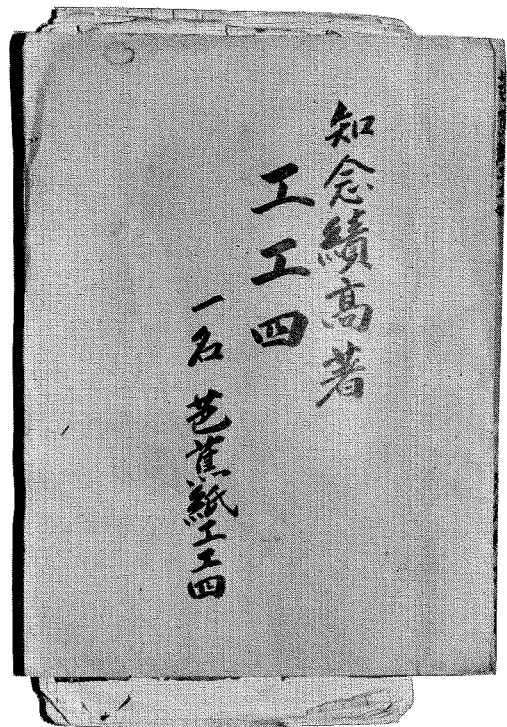 知念績高著
工工四
一名 芭蕉紙工工四